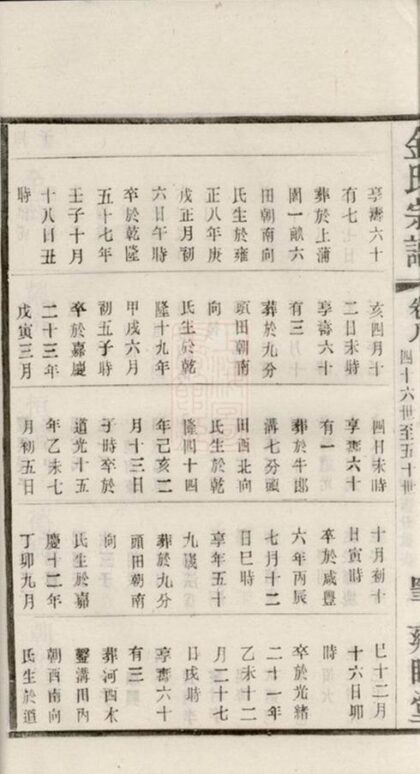 金氏宗譜
卷八
四十六世至五十世
睦堂
享壽六十
有七
葬於上蒲
閣一畝六
田朝南向
氏生於雍
正八年庚
戌正月初
六日午時
卒於乾隆
五十七年
壬子十月
十八日丑
時
亥四月十
二日未時
享壽六十
有三
葬於九分
頭田朝南
向
氏生於乾
隆十九年
甲戌六月
初五子時
卒於嘉慶
二十三年
戊寅三月
四日未時
享壽六十
有一
葬於牛郎
溝七分頭
田西北向
氏生於乾
隆四十四
年己亥二
月十三日
子時卒於
道光十五
年乙未七
月初五日
十月初十
日寅時
卒於咸豐
六年丙辰
七月十二
日巳時
享年五十
九歲
葬於九分
頭田朝南
向
氏生於嘉
慶十二年
丁卯九月
巳十二月
十六日卯
時
卒於光緒
二十一年
乙未十二
月二十七
日戌時
享壽六十
有三
葬河西木
鑿溝田內
朝西南向
氏生於道